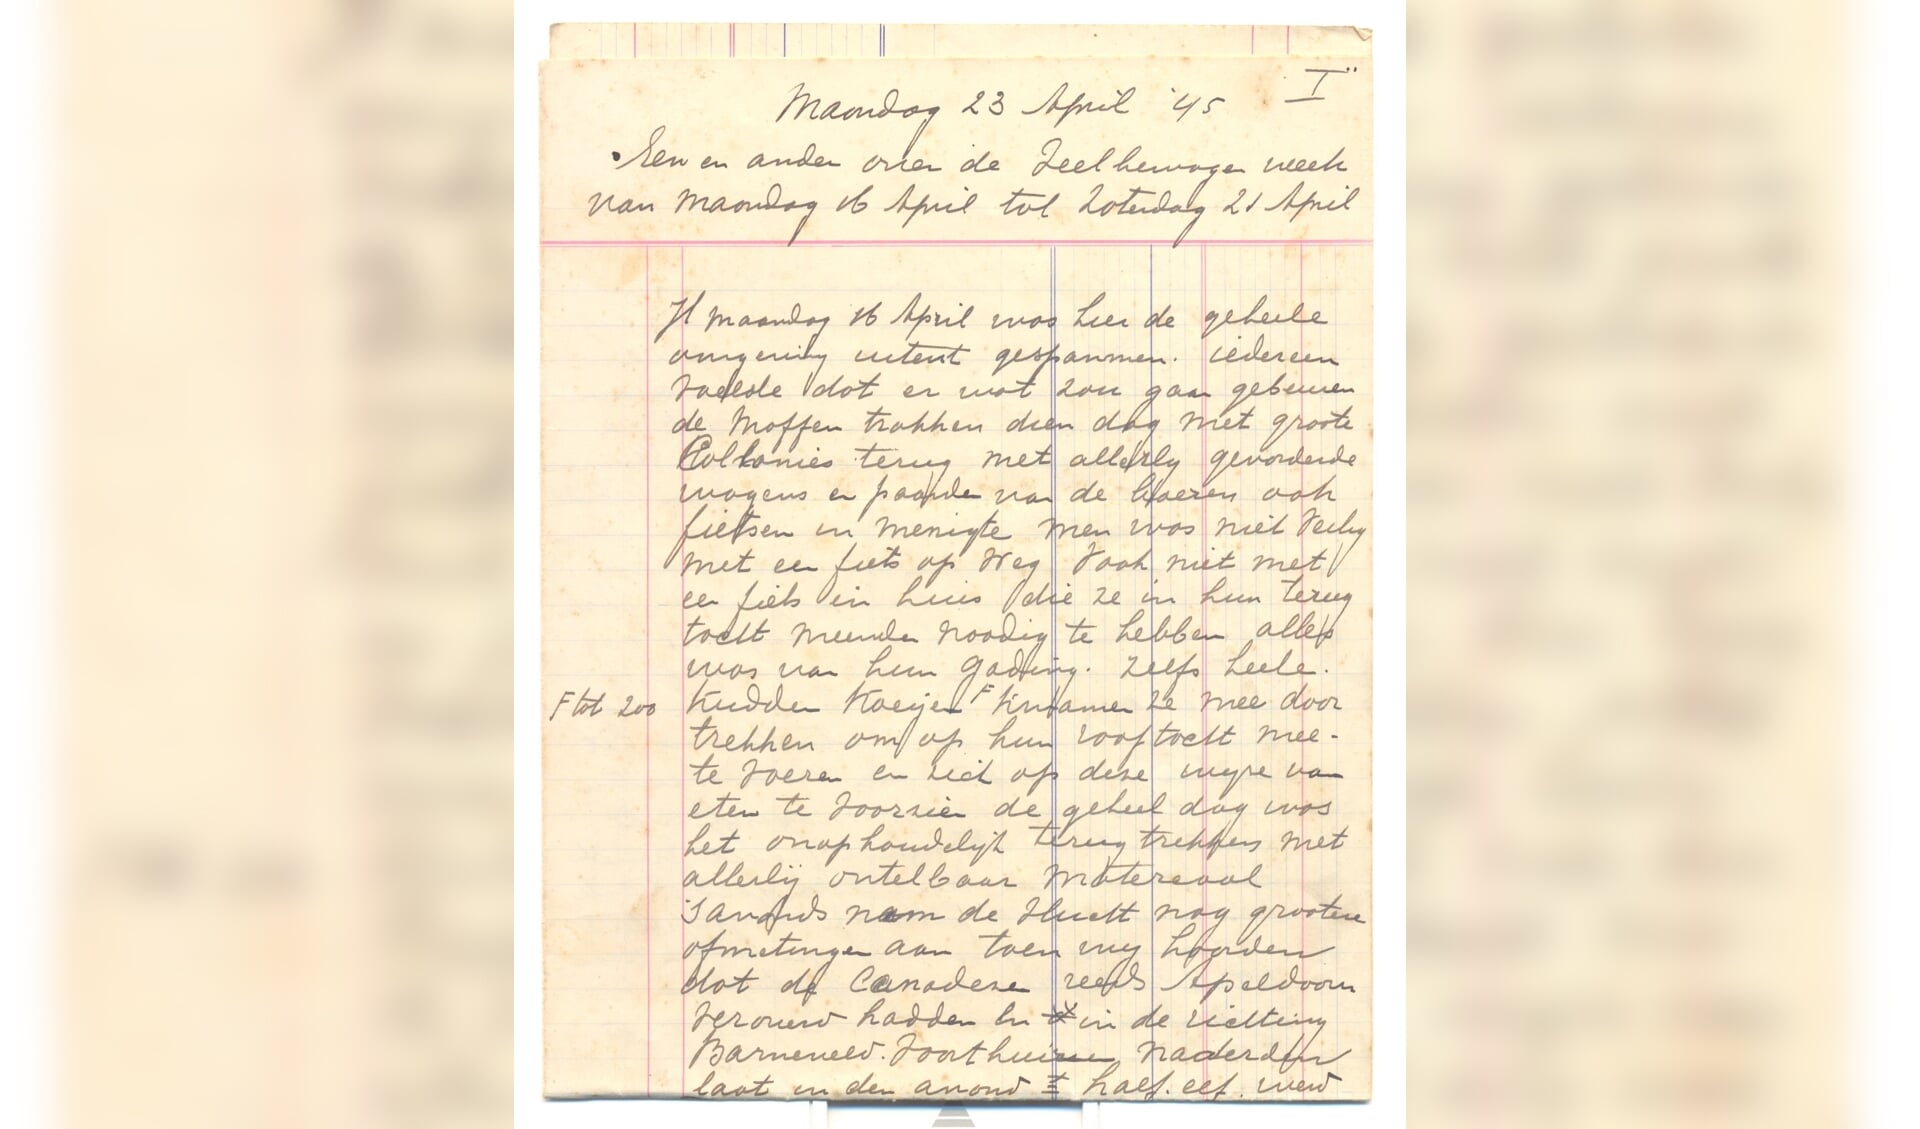 I
Maandag 23 April '45
Een en ander over de Veelbewogen week
van Maandag 16 April tot Zaterdag 21 April
Jl maandag 16 April was hier de geheele
omgeving uiterst gespannen. iedereen
Voelde dat er wat zou gaan gebeuren
de Moffen trokken dien dag met groote
Collonies terug met allerly gevorderde
wagens en paarden van de boeren ook
fietsen in menigte men was niet Veilig
met een fiets op Weg Vook niet met
een fiets in huis die ze in hun terug
tocht meenden noodig te hebben alles
was van hun gading. zelfs heele.
F tot 200 Kudden Koeijen F kwamen ze mee door
trekken om op hun rooftocht mee-
te Voeren en zich op deze wyze van
eten te Voorzien de geheel dag was
het onophoudelijk terug trekken met
allerlij ontelbaar Matereaal
's avonds nam de Vlucht nog grootere
afmetingen aan toen wy hoorden
dat de Canadeze reeds Apeldoorn
Veroverd hadden En in de richting
Barneveld. Voorthuizen naderden
laat in den avond ± half. elf. werd